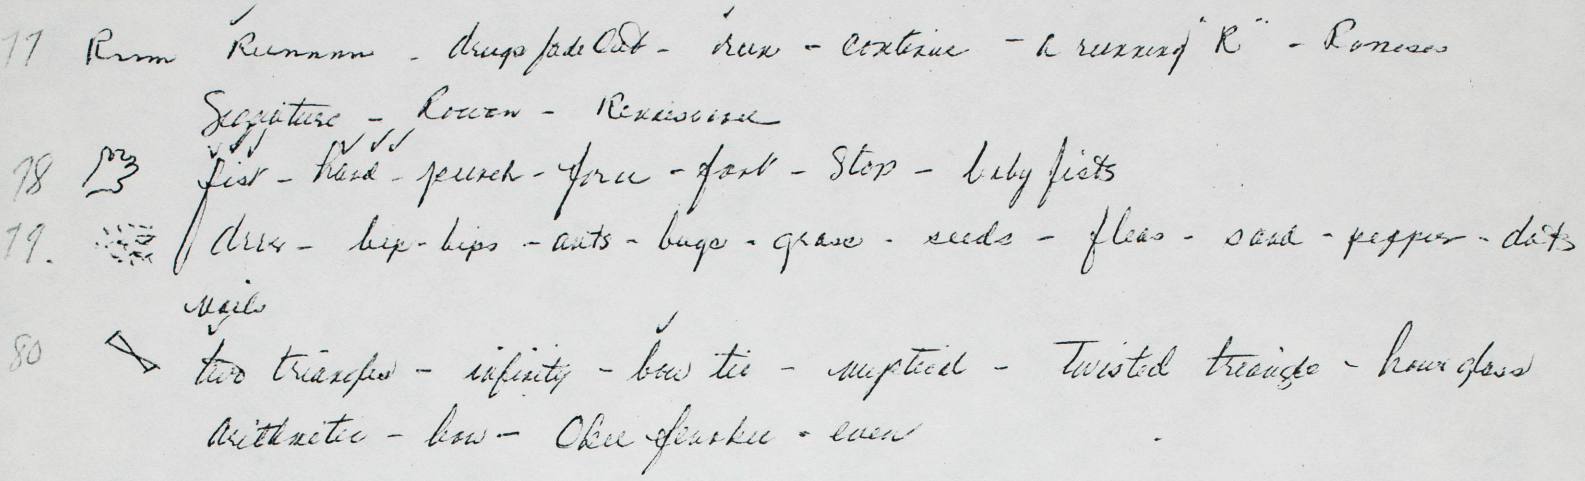 77 Rnnn Runnnnn - drugs fade Out - run - continue - a running "R" - Rameses
Signature - Rowan - Renaissance
78 fist - hand - punch - force - fort - Stop - baby fists
79. - bips - ants - bugs - grass - seeds - fleas - sand - pepper - dots
nails
80 two triangles - infinity - bow tie - nuptial - Twisted triangle - hour glass
arithmetic - bow - - even